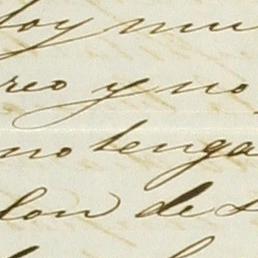 oy mu
reo y no
no tenga
lon de s